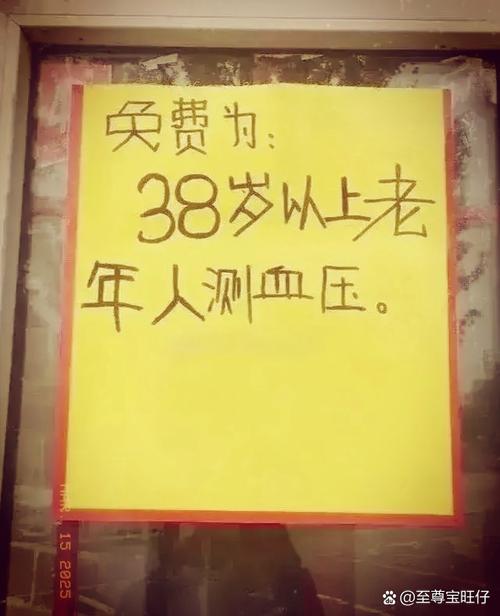 免费为:
38岁以上老
年人测血压。
MAR 15 2025
@至尊宝旺仔